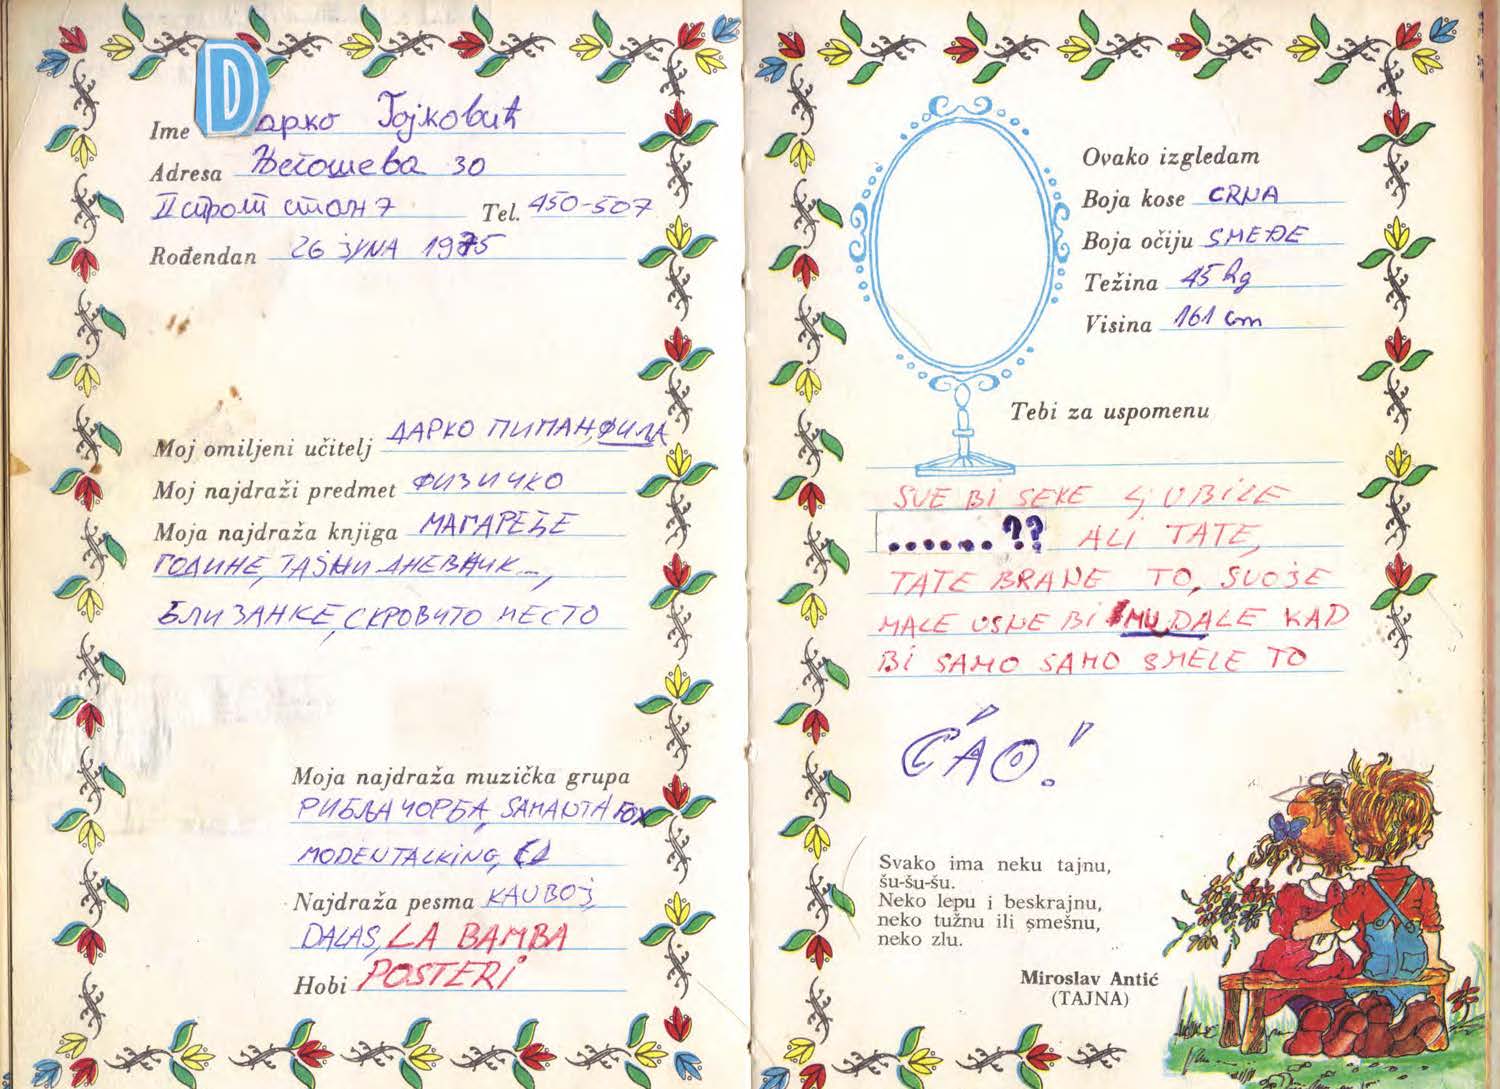 Ime Дарко Гојковић
Adresa Његошева 30
II спрат стан 7 Tel. 450-507
Rođendan 26 јуна 1975
Moj omiljeni učitelj ДАРКО ПИПАН, ФИЛА
Moj najdraži predmet ФИЗИЧКО
Moja najdraža knjiga МАГАРЕЋЕ
ГОДИНЕ, ТАЈНИ ДНЕВНИК...,
БЛИЗАНКЕ, СКРОВИТО МЕСТО
Moja najdraža muzička grupa
РИБЉА ЧОРБА, SAMANTA FOX
MODEN TALKING,
Najdraža pesma KAUBOJ,
DALAS, LA BAMBA
Hobi POSTERI
Ovako izgledam
Boja kose CRNA
Boja očiju SMEĐE
Težina 45 kg
Visina 161 cm
Tebi za uspomenu
SVE BI SEKE LJUBILE
......?? ALI TATE,
TATE BRANE TO, SVOJE
MALE USNE BI MU DALE KAD
BI SAMO SAMO SMELE TO
ĆAO!
Svako ima neku tajnu,
šu-šu-šu.
Neko lepu i beskrajnu,
neko tužnu ili smešnu,
neko zlu.
Miroslav Antić
(TAJNA)